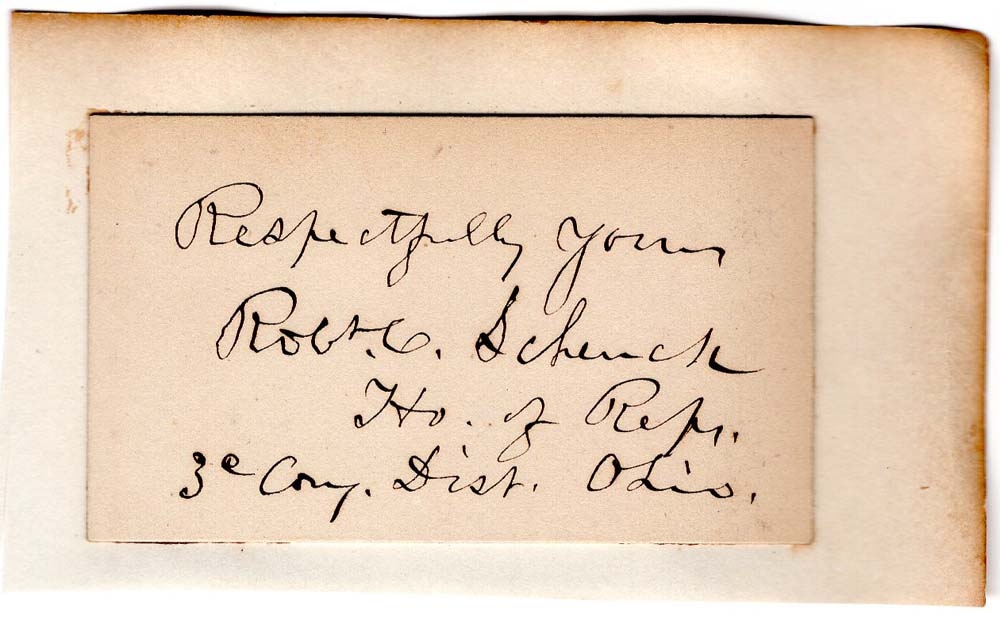 Respectfully Yours
Robt. C. Schenck
Ho. of Reps.
3e Cong. Dist. Ohio.